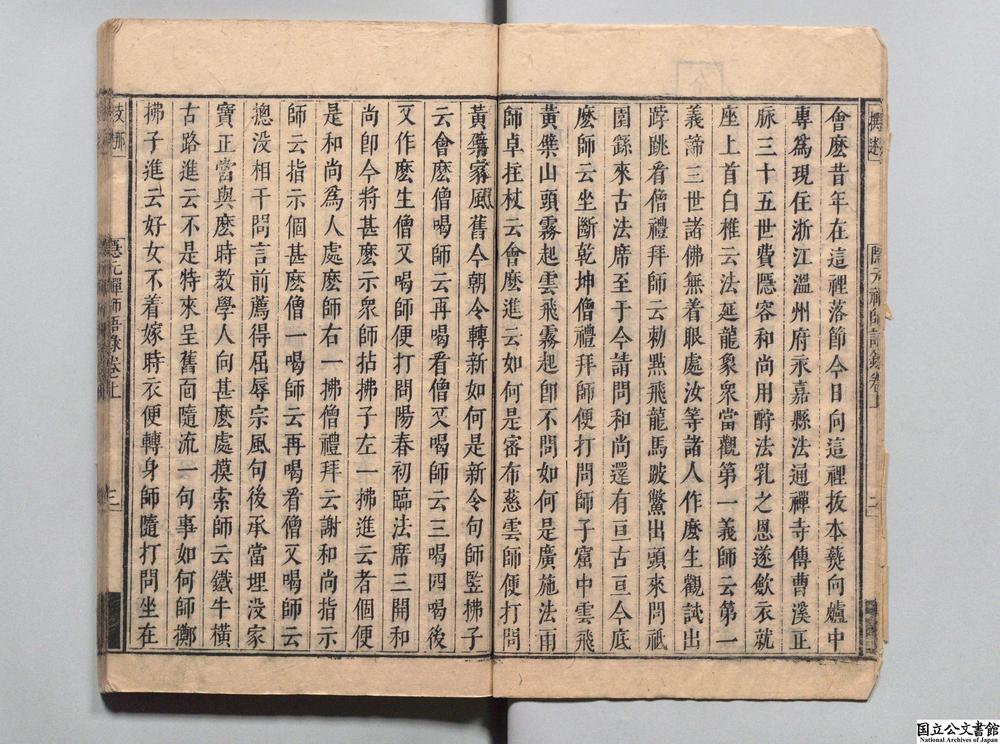 會麽昔年在這裡落節今日向這裡拔本爇向爐中
專爲現住浙江溫州府永嘉縣法通禪寺傳曹溪正
脉三十五世費隱容和尚用酧法乳之恩遂歛衣就
座上首白椎云法延龍象衆當觀第一義師云第一
義諦三世諸佛無着眼處汝等諸人作麽生觀試出
𨁝跳看僧禮拜師云勅點飛龍馬跛鱉出頭來問祇
園繇來古法席至于今請問和尚還有亘古亘今底
麽師云坐斷乾坤僧禮拜師便打問師子窟中雲飛
黃檗山頭霧起雲飛霧起卽不問如何是廣施法雨
師卓拄杖云會麽進云如何是審布慈雲師便打問
黃檗家風舊今朝令轉新如何是新令句師竪拂子
云會麽僧喝師云再喝看僧又喝師云三喝四喝後
又作麽生僧又喝師便打問陽春初臨法席三開和
尚卽今將甚麽示衆師拈拂子左一拂進云者個便
是和尚爲人處麽師右一拂僧禮拜云謝和尚指示
師云指示個甚麽僧一喝師云再喝看僧又喝師云
摠没相干問言前薦得屈辱宗風句後承當埋没家
寶正當與麽時教學人向甚麽處摸索師云鐵牛橫
古路進云不是特來呈舊面隨流一句事如何師擲
拂子進云好女不着嫁時衣便轉身師隨打問坐在
隱元禪師語錄卷上
三
国立公文書館
National Archives of Japan